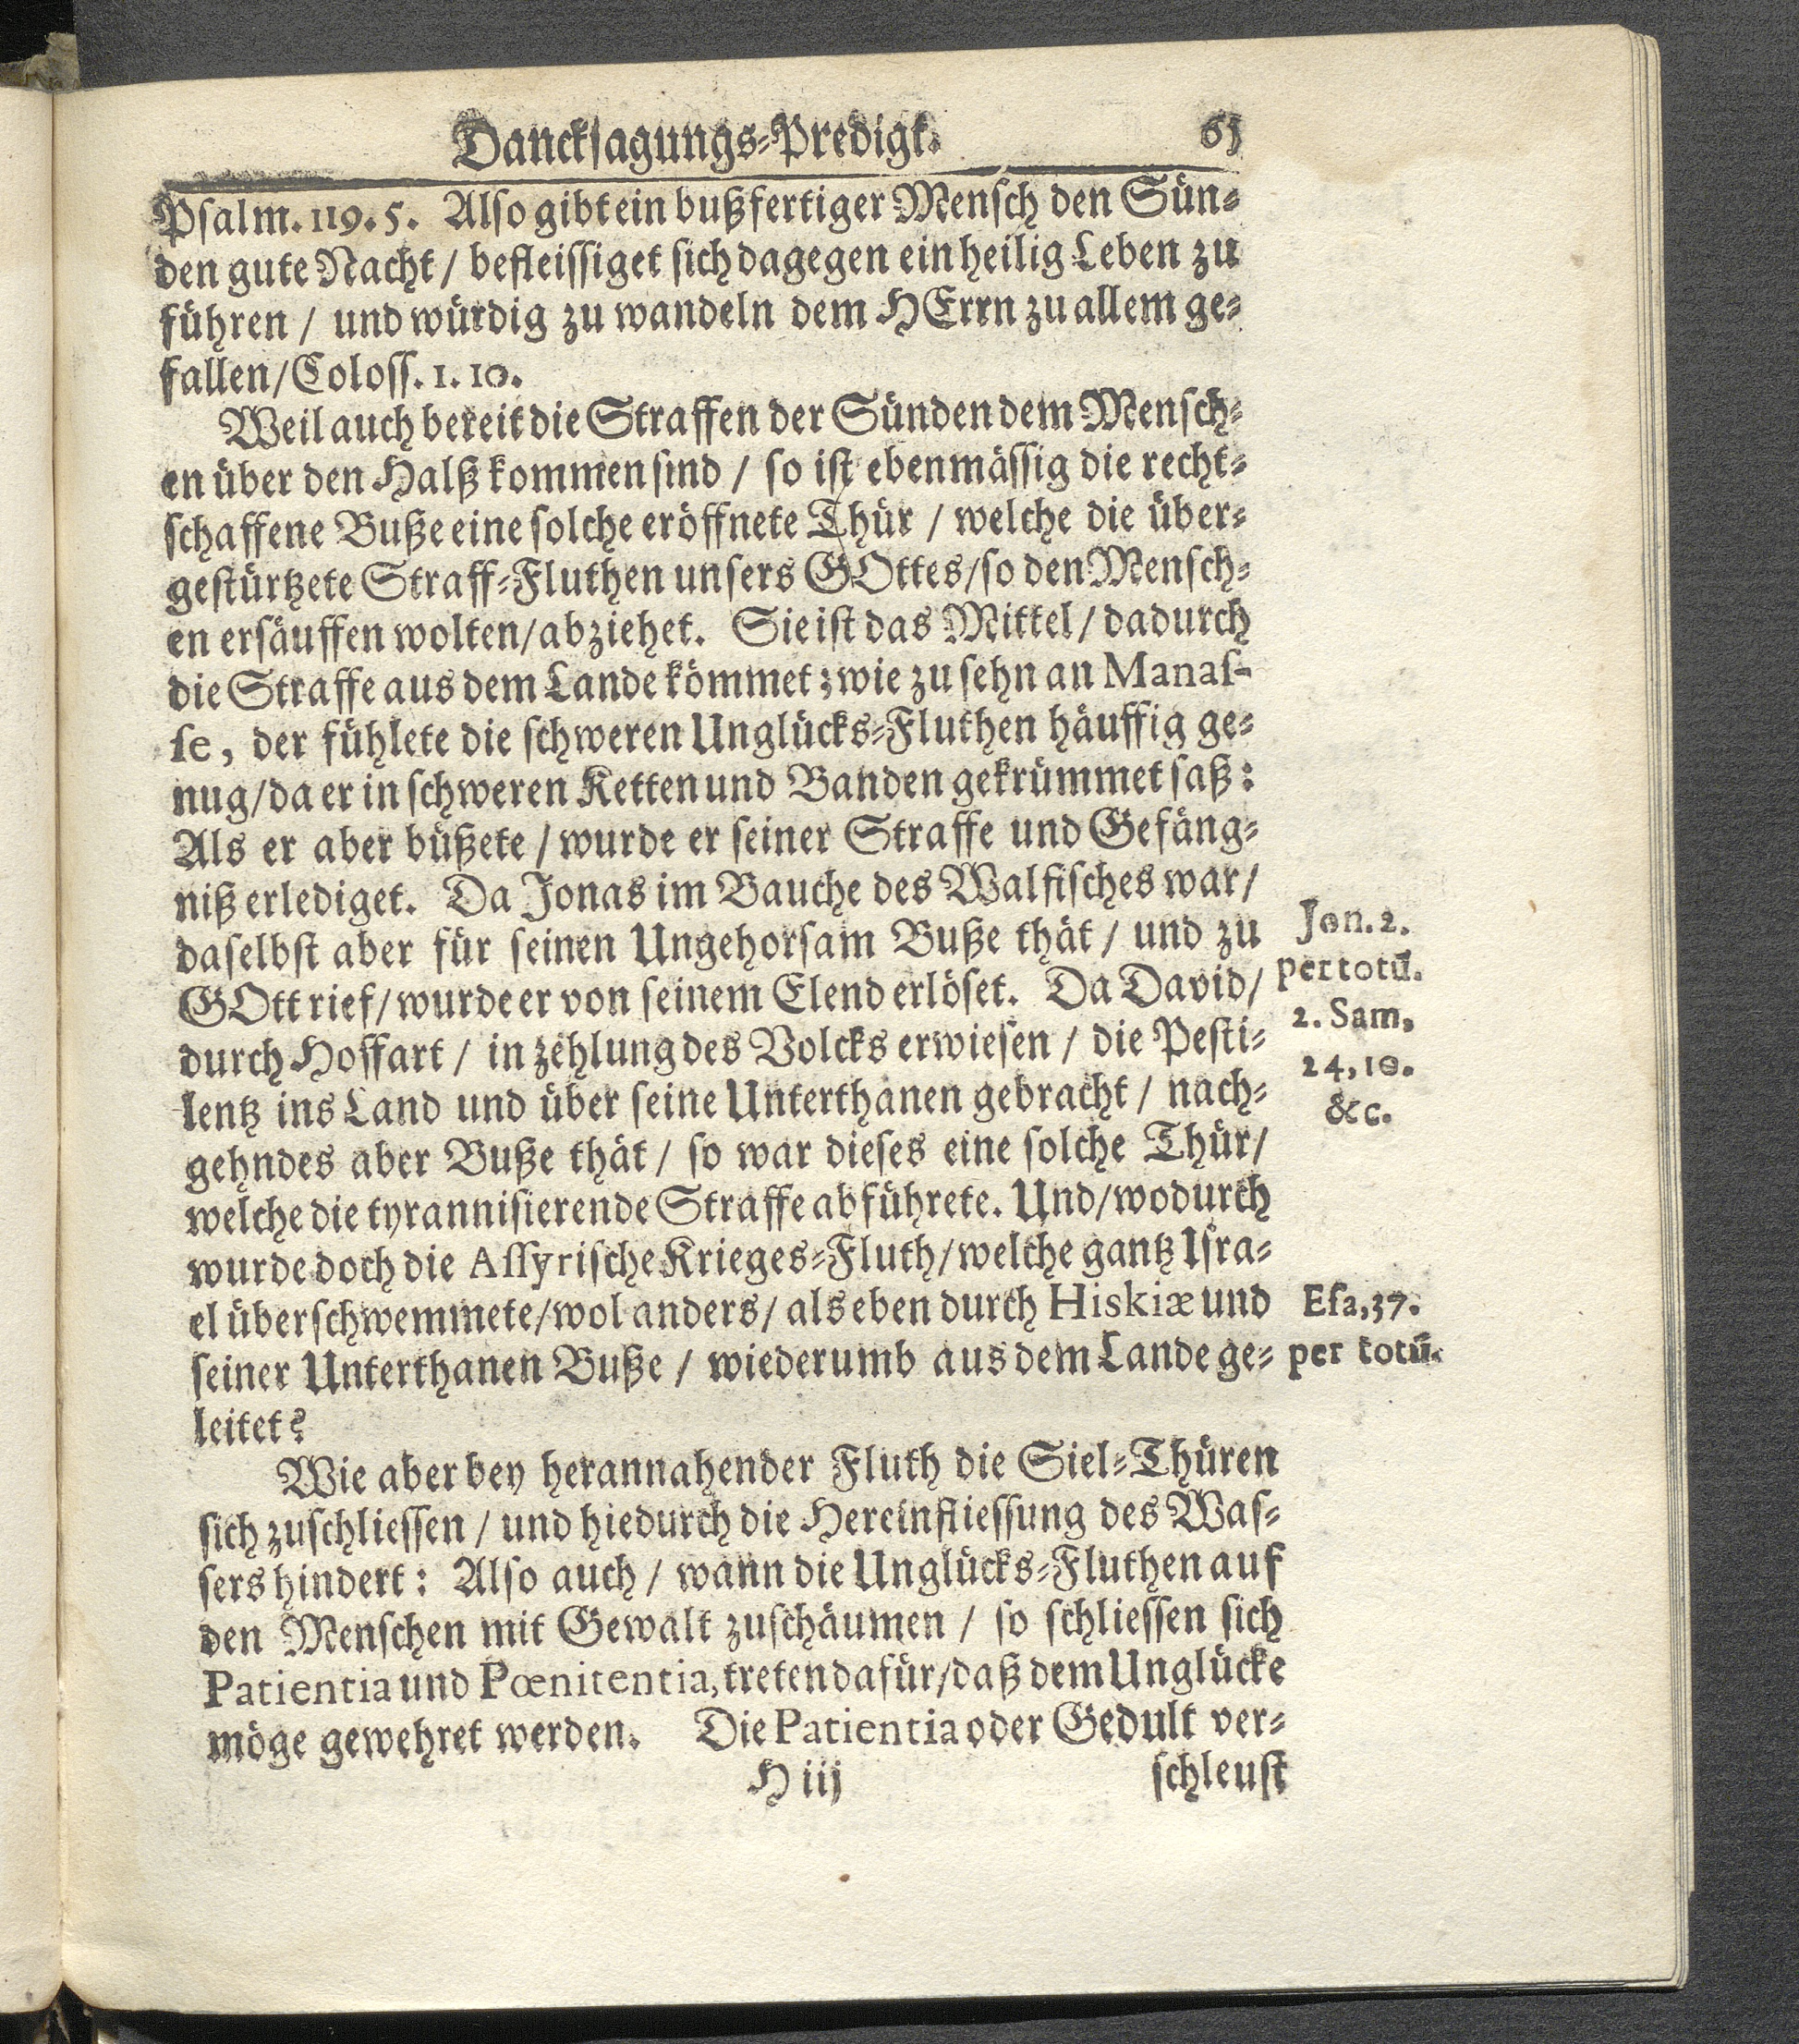 Dancksagungs-Predigt. 61
Psalm. 119. 5. Also gibt ein bußfertiger Mensch den Sün-
den gute Nacht / befleissiget sich dagegen ein heilig Leben zu
führen / und würdig zu wandeln dem HErrn zu allem ge-
fallen / Coloss. 1. 10.
Weil auch bereit die Straffen der Sünden dem Mensch-
en über den Halß kommen sind / so ist ebenmässig die recht-
schaffene Buße eine solche eröffnete Thür / welche die über-
gestürtzete Straff-Fluthen unsers GOttes / so den Mensch-
en ersäuffen wolten / abziehet. Sie ist das Mittel / dadurch
die Straffe aus dem Lande kömmet; wie zu sehn an Manas-
se, der fühlete die schweren Unglücks-Fluthen häuffig ge-
nug / da er in schweren Ketten und Banden gekrümmet saß:
Als er aber büßete / wurde er seiner Straffe und Gefäng-
niß erlediget. Da Jonas im Bauche des Walfisches war /
daselbst aber für seinen Ungehorsam Buße thät / und zu
GOtt rief / wurde er von seinem Elend erlöset. Da David /
durch Hoffart / in zehlung des Volcks erwiesen / die Pesti-
lentz ins Land und über seine Unterthanen gebracht / nach-
gehndes aber Buße thät / so war dieses eine solche Thür /
welche die tyrannisierende Straffe abführete. Und / wodurch
wurde doch die Assyrische Krieges-Fluth / welche gantz Isra-
el überschwemmete / wol anders / als eben durch Hiskiæ und
seiner Unterthanen Buße / wiederumb aus dem Lande ge-
leitet?
Wie aber bey herannahender Fluth die Siel-Thüren
sich zuschliessen / und hiedurch die Hereinfliessung des Was-
sers hindert: Also auch / wann die Unglücks-Fluthen auf
den Menschen mit Gewalt zuschäumen / so schliessen sich
Patientia und Pœnitentia, treten dafür / daß dem Unglücke
möge gewehret werden. Die Patientia oder Gedult ver-
H iij schleust
Jon. 2.
per totū.
2. Sam,
24, 10.
&c.
Esa, 37.
per totū.